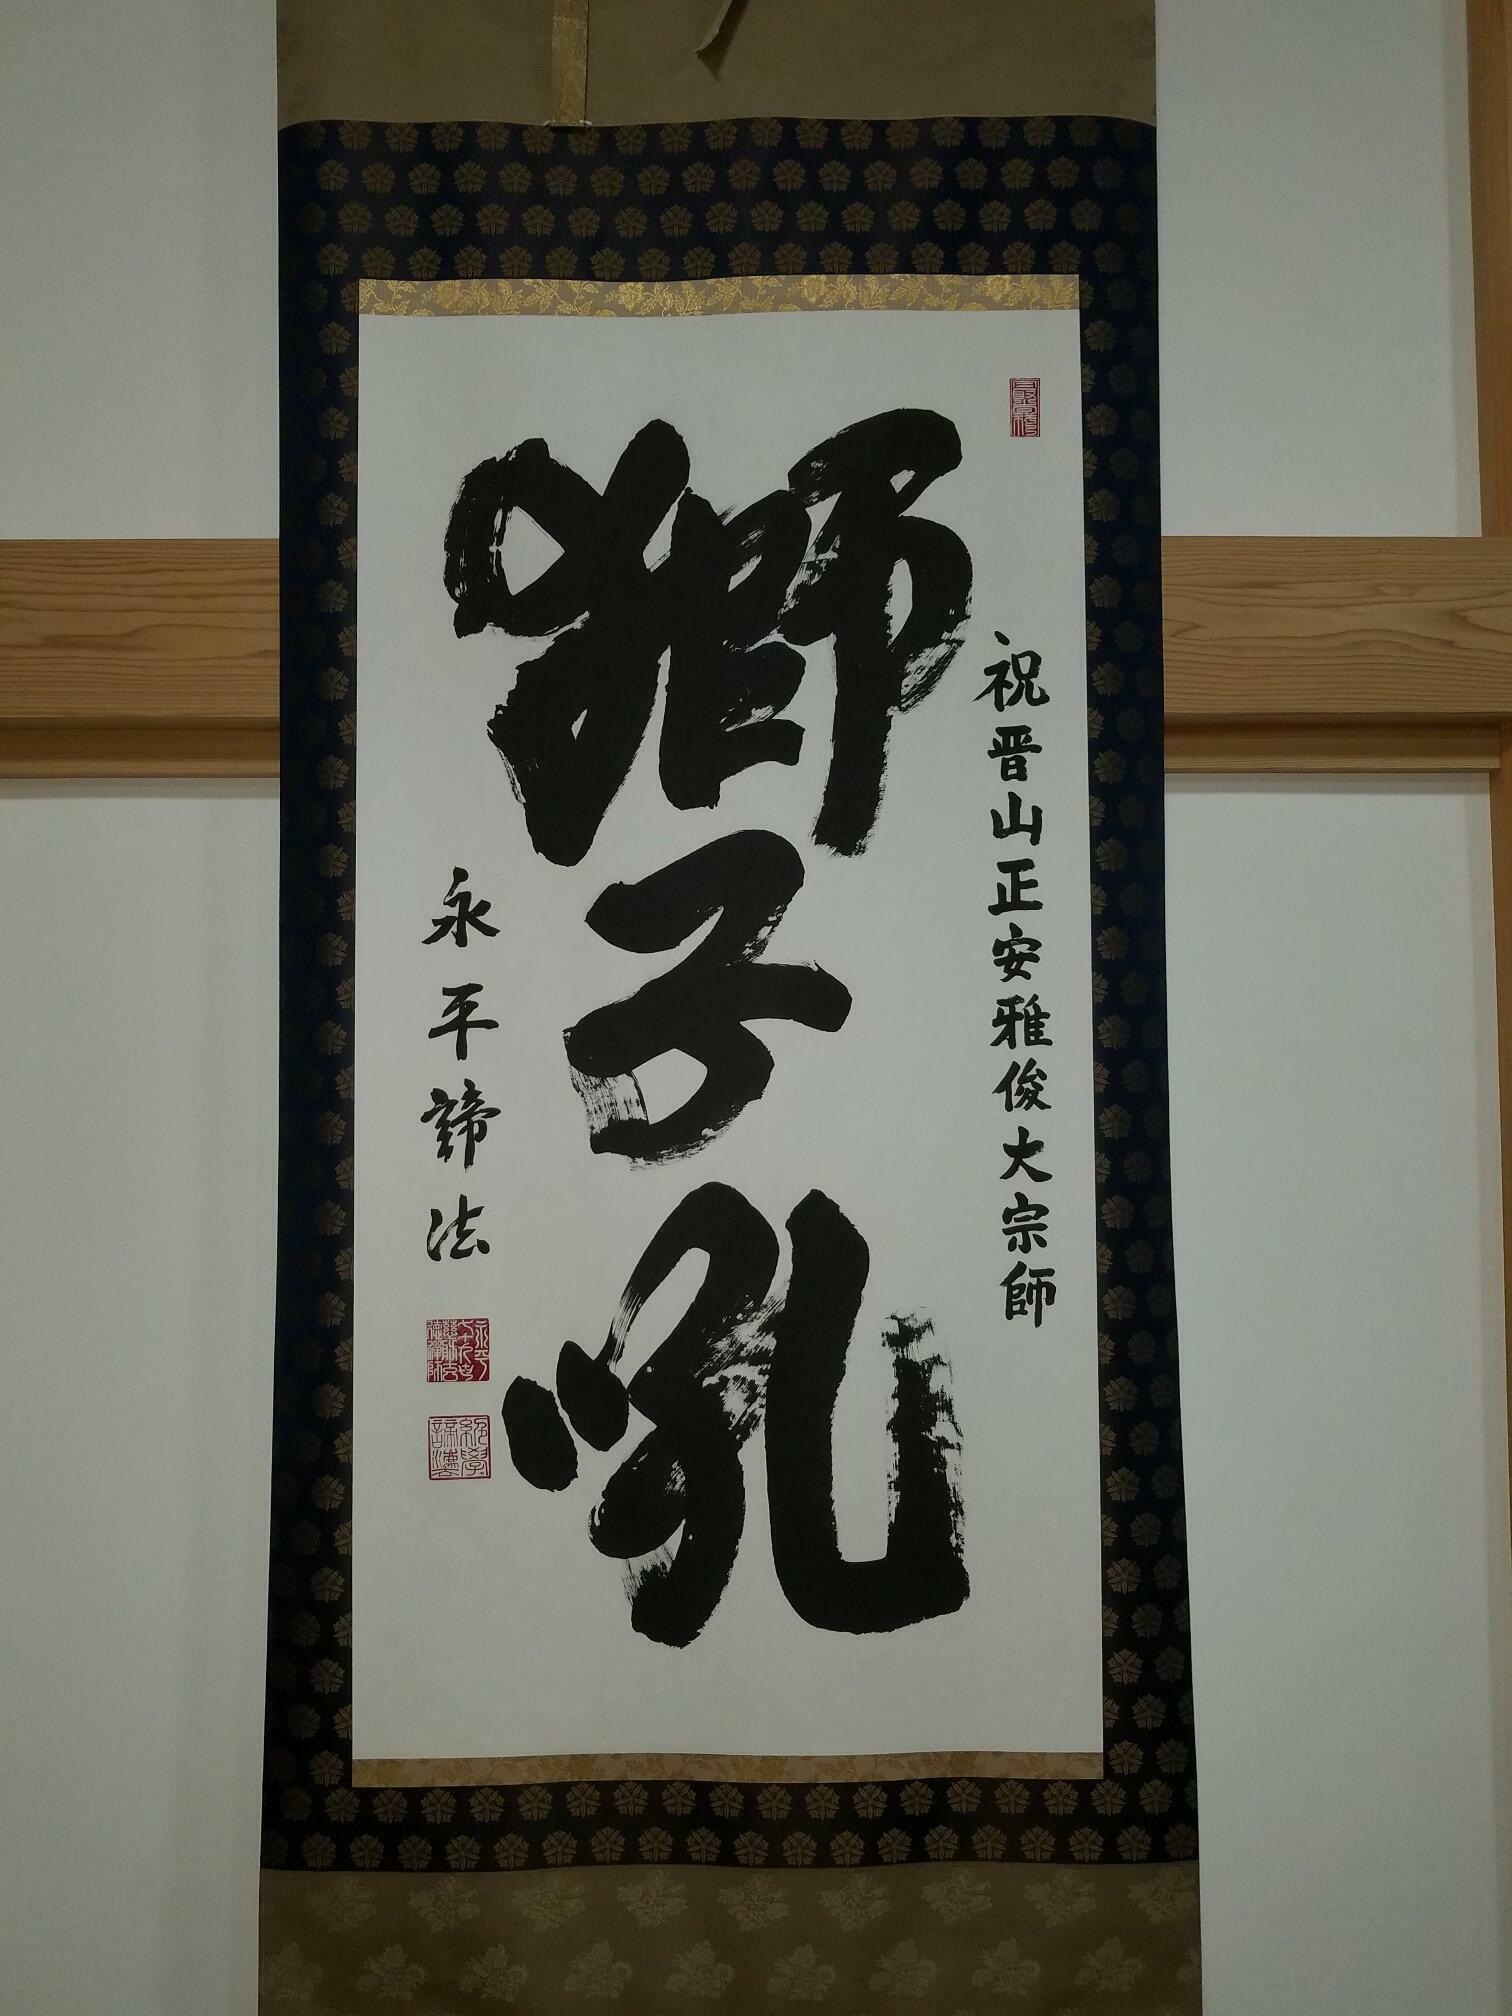 祝晋山正安雅俊大宗師
獅子吼
永平諦法